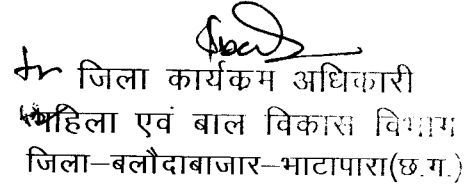 जिला कार्यकम अधिकारी
महिला एवं बाल विकास विभाग
जिला–बलौदाबाजार–भाटापारा(छ.ग.)